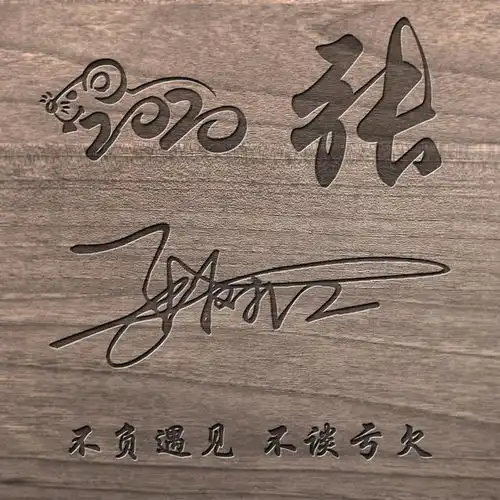 2020 张
不负遇见 不谈亏欠